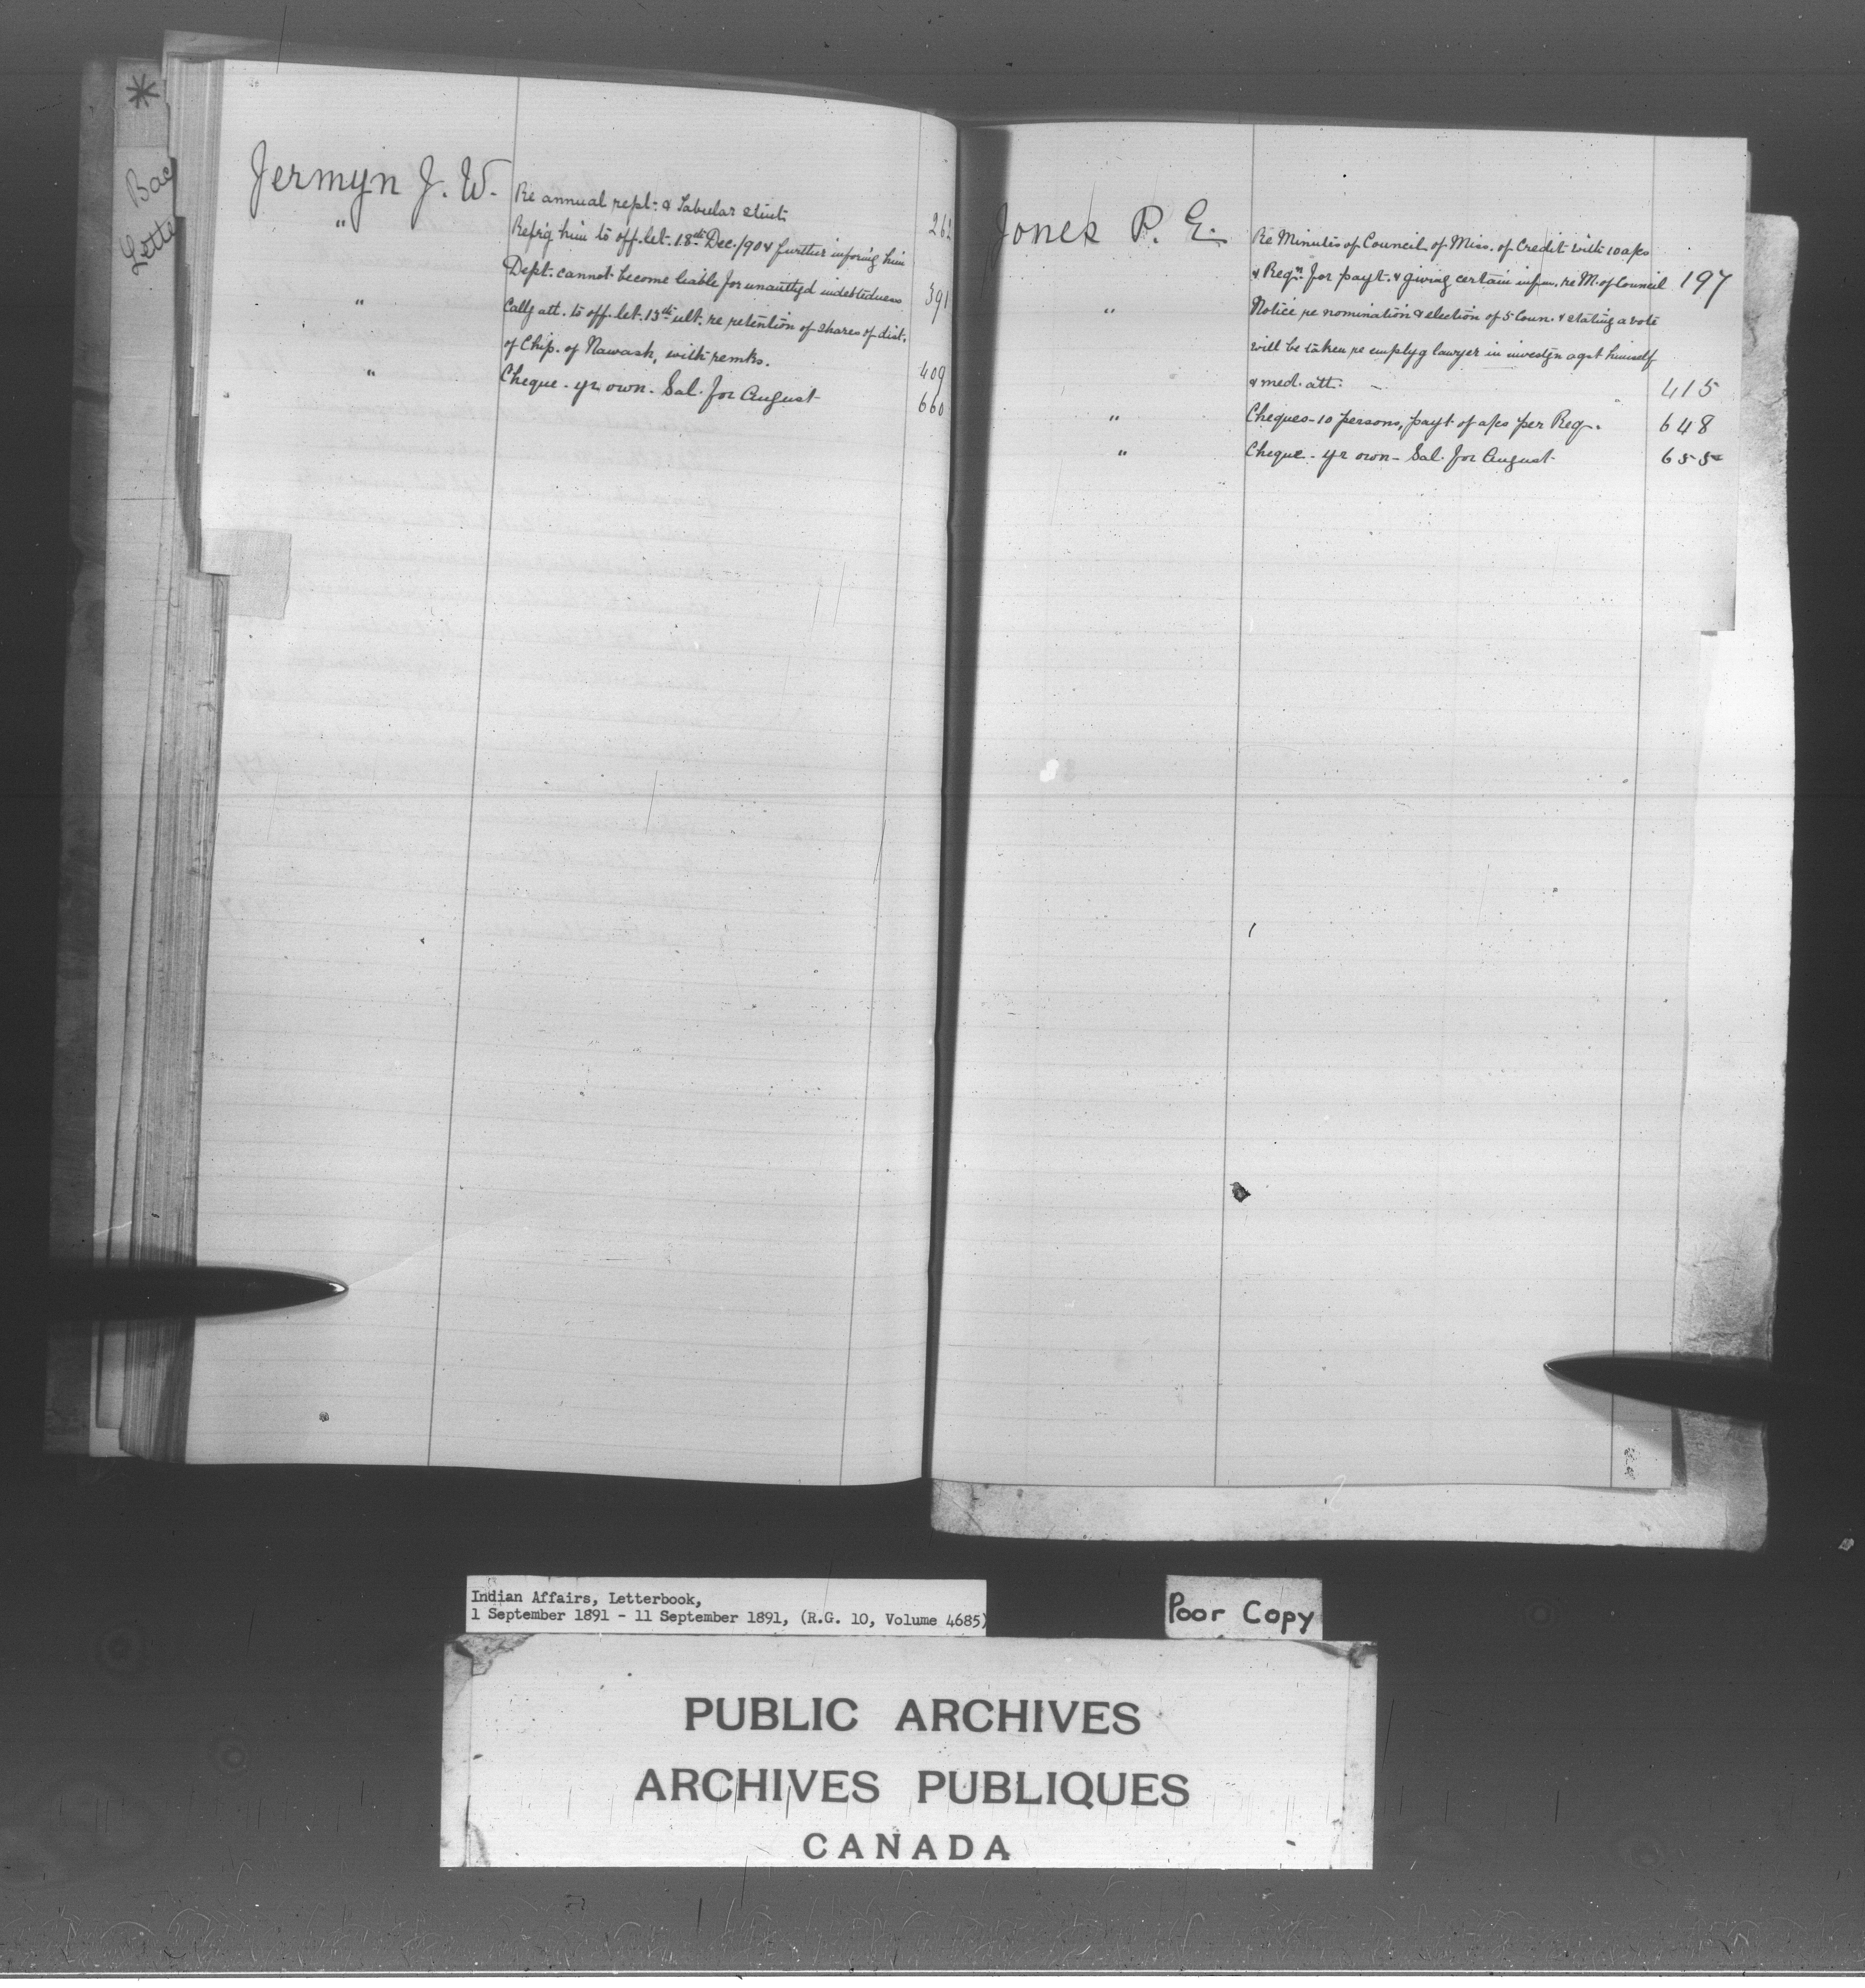 *
Bac
Lette
Jermyn J. W. Re annual rept. & Tabular Stmt. 262
" Refrg him to off. let. 18th Dec./90 & further inforing him
Dept. cannot become liable for unauthd indebtedness 391
" Callg att. to off. let. 13th ult. re retention of shares of dist.
of Chip. of Nawash, with remks. 409
" Cheque - yr own. Sal. for August 660
Jones P. E. Re Minutes of Council of Miss. of Credit with 10 a/cs
& Reqn for payt. & giving certain infm. re M. of Council 197
" Notice re nomination & election of 5 Coun. & stating a vote
will be taken re emplyg lawyer in investgn agst himself
& med. att. 415
" Cheques - 10 persons, payt of a/cs per Req. 648
" Cheque - yr own - Sal. for August 655
Indian Affairs, Letterbook,
1 September 1891 - 11 September 1891, (R.G. 10, Volume 4685)
Poor Copy
PUBLIC ARCHIVES
ARCHIVES PUBLIQUES
CANADA